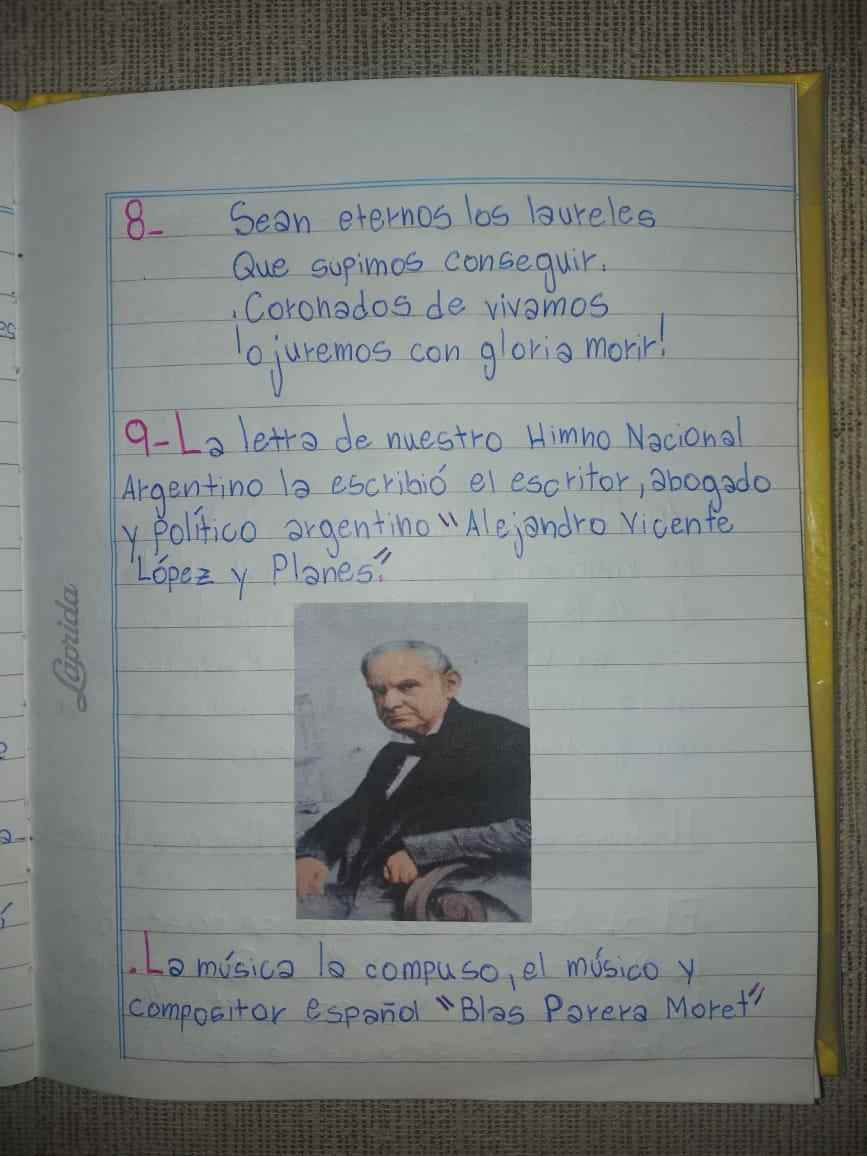 8- Sean eternos los laureles
Que supimos conseguir.
¡Coronados de vivamos
lo juremos con gloria morir!
9- La letra de nuestro Himno Nacional
Argentino la escribió el escritor, abogado
y político argentino "Alejandro Vicente
López y Planes."
Laprida
.La música la compuso, el músico y
compositor español "Blas Parera Moret"